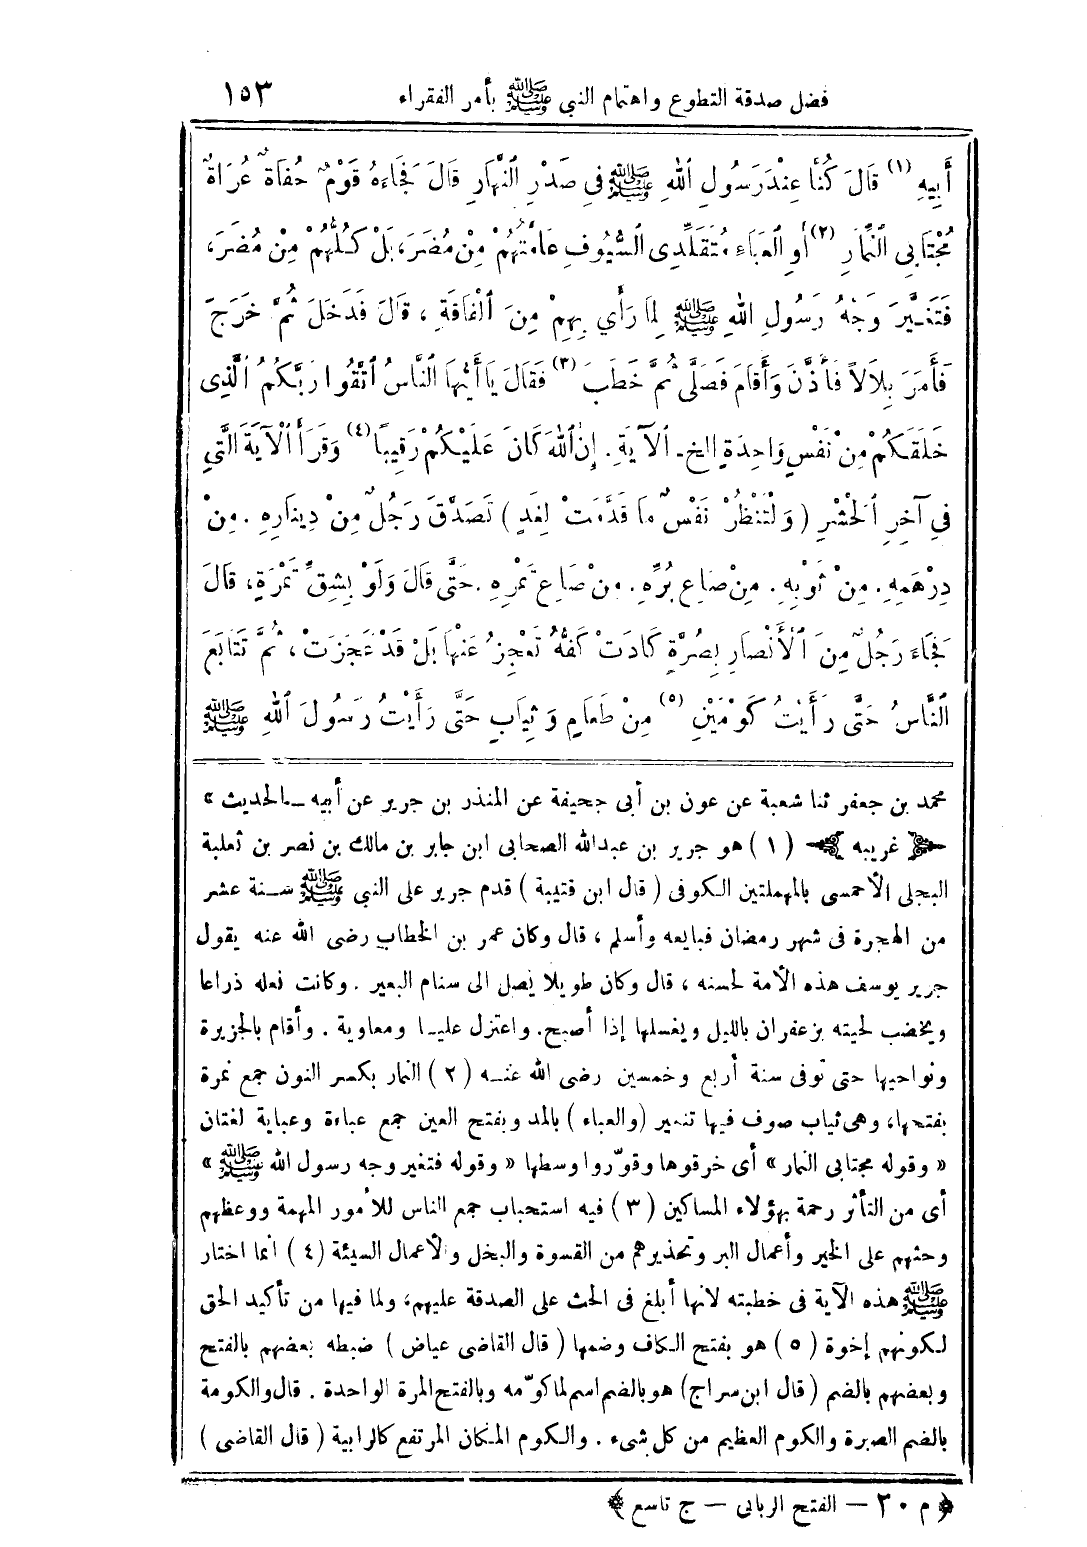 فضل صدقة التطوع واهتمام النبي ﷺ بأمر الفقراء ١٥٣
أَبِيهِ (١) قَالَ كُنَّا عِنْدَ رَسُولِ اللهِ ﷺ فِي صَدْرِ النَّهَارِ قَالَ فَجَاءَهُ قَوْمٌ حُفَاةٌ عُرَاةٌ
مُجْتَابِي النِّمَارِ (٢) أَوِ الْعَبَاءِ مُتَقَلِّدِي السُّيُوفِ عَامَّتُهُمْ مِنْ مُضَرَ، بَلْ كُلُّهُمْ مِنْ مُضَرَ،
فَتَغَيَّرَ وَجْهُ رَسُولِ اللهِ ﷺ لِمَا رَأَي بِهِمْ مِنَ الْفَاقَةِ ، قَالَ فَدَخَلَ ثُمَّ خَرَجَ
فَأَمَرَ بِلَالاً فَأَذَّنَ وَأَقَامَ فَصَلَّى ثُمَّ خَطَبَ (٣) فَقَالَ يَا أَيُّهَا النَّاسُ اتَّقُوا رَبَّكُمُ الَّذِى
خَلَقَكُمْ مِنْ نَفْسٍ وَاحِدَةٍ الخ. الْآيَةِ. إِنَّ اللهَ كَانَ عَلَيْكُمْ رَقِيبًا (٤) وَقَرَأَ الْآيَةَ الَّتِي
فِي آخِرِ الْحَشْرِ ( وَلْتَنْظُرْ نَفْسٌ مَا قَدَّمَتْ لِغَدٍ ) تَصَدَّقَ رَجُلٌ مِنْ دِينَارِهِ . مِنْ
دِرْهَمِهِ. مِنْ ثَوْبِهِ. مِنْ صَاعِ بُرِّهِ. مِنْ صَاعِ تَمْرِهِ. حَتَّى قَالَ وَلَوْ بِشِقِّ تَمْرَةٍ، قَالَ
فَجَاءَ رَجُلٌ مِنَ الْأَنْصَارِ بِصُرَّةٍ كَادَتْ كَفُّهُ تَعْجِزُ عَنْهَا بَلْ قَدْ عَجَزَتْ ، ثُمَّ تَتَابَعَ
النَّاسُ حَتَّى رَأَيْتُ كَوْمَيْنِ (٥) مِنْ طَعَامٍ وَثِيَابٍ حَتَّى رَأَيْتُ رَسُولَ اللهِ ﷺ
محمد بن جعفر ثنا شعبة عن عون بن أبى جحيفة عن المنذر بن جرير عن أبيه ــ الحديث »
﴿ غريبه ﴾ ( ١ ) هو جرير بن عبدالله الصحابى ابن جابر بن مالك بن نصر بن ثعلبة
البجلى الأحمسى بالمهملتين الكوفى ( قال ابن قتيبة ) قدم جرير على النبى ﷺ سنة عشر
من الهجرة فى شهر رمضان فبايعه وأسلم ، قال وكان عمر بن الخطاب رضى الله عنه يقول
جرير يوسف هذه الأمة لحسنه ، قال وكان طويلا يصل الى سنام البعير . وكانت نعله ذراعا
ويخضب لحيته بزعفران بالليل ويغسلها إذا أصبح. واعتزل عليا ومعاوية . وأقام بالجزيرة
ونواحيها حتى توفى سنة أربع وخمسين رضى الله عنه ( ٢ ) النمار بكسر النون جمع نمرة
بفتحها، وهى ثياب صوف فيها تنمير (والعباء ) بالمد وبفتح العين جمع عباءة وعباية لغتان
« وقوله مجتابى النمار » أى خرقوها وقوّروا وسطها « وقوله فتغير وجه رسول الله ﷺ »
أى من التأثر رحمة بهؤلاء المساكين ( ٣ ) فيه استحباب جمع الناس للأمور المهمة ووعظهم
وحثهم على الخير وأعمال البر وتحذيرهم من القسوة والبخل والأعمال السيئة (٤ ) انما اختار
ﷺ هذه الآية فى خطبته لانها أبلغ فى الحث على الصدقة عليهم، ولما فيها من تأكيد الحق
لكونهم إخوة ( ٥ ) هو بفتح الكاف وضمها ( قال القاضى عياض ) ضبطه بعضهم بالفتح
وبعضهم بالضم ( قال ابن سراج) هو بالضم اسم لما كوّمه وبالفتح المرة الواحدة . قال والكومة
بالضم الصبرة والكوم العظيم من كل شىء . والكوم المكان المرتفع كالرابية ( قال القاضى )
﴿ م ٢٠ — الفتح الربانى — ج تاسع ﴾